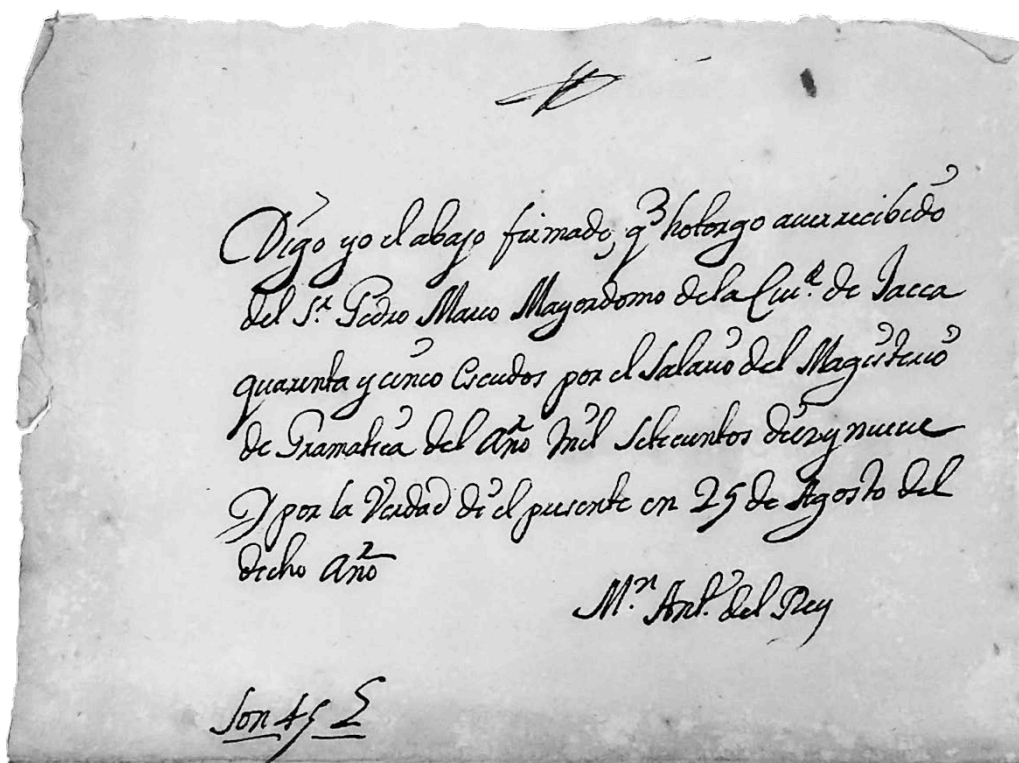 Digo yo el abajo firmado, q̃ hotorgo auer recibido
del S.r Pedro Marco Mayordomo dela Ciu.d de Jacca
quarenta y cinco Escudos por el Salario del Magisterio
de Gramatica del Año Mil Setecientos diez y nueue
Y por la Verdad di el presente en 25 de Agosto del
dicho Año
M.n Ant.o del Rey
Son 45 E